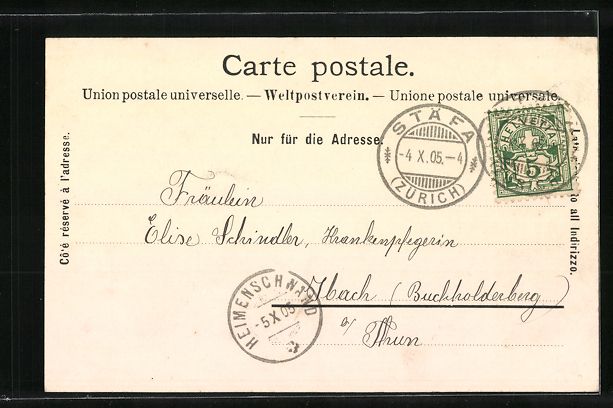 Carte postale.
Union postale universelle. — Weltpostverein. — Unione postale universale.
Nur für die Adresse.
STÄFA
-4 X.05.-4
(ZÜRICH)
HELVETIA
5
Côté réservé à l'adresse.
all Indirizzo.
Fräulein
Elise Schindler, Krankenpflegerin
Ibach (Buchholderberg)
a/
Thun
HEIMENSCHWAND
-5 X 05